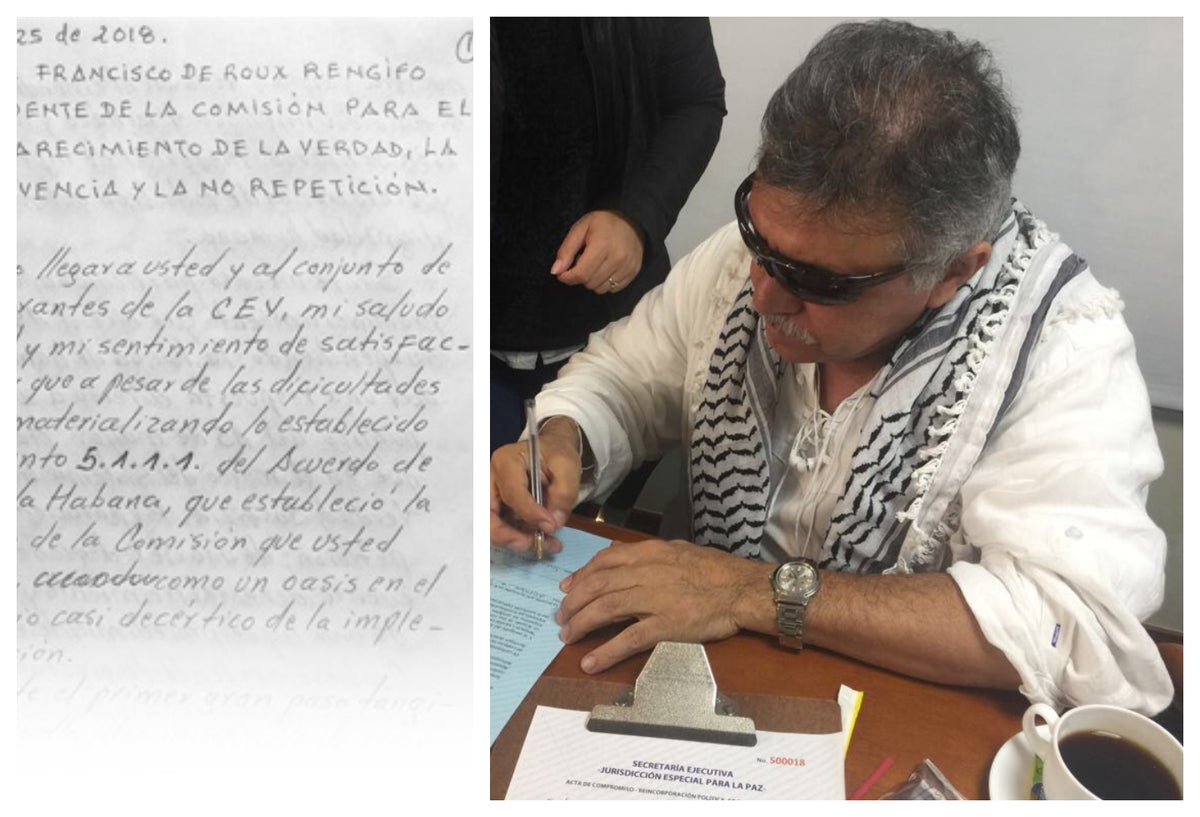 25 de 2018.
FRANCISCO DE ROUX RENGIFO
DENTE DE LA COMISIÓN PARA EL
ARECIMIENTO DE LA VERDAD, LA
VENCIA Y LA NO REPETICIÓN.
llegar a usted y al conjunto de
rantes de la CEV, mi saludo
y mi sentimiento de satisfac-
que a pesar de las dicicultades
materializando lo establecido
nto 5.1.1.1. del Acuerdo de
la Habana, que estableció la
de la Comisión que usted
como un oasis en el
io casi decértico de la imple-
ción.
te el primer gran paso tangi-
No. 500018
SECRETARÍA EJECUTIVA
-JURISDICCIÓN ESPECIAL PARA LA PAZ-
ACTA DE COMPROMISO - REINCORPORACIÓN POLÍTICA,